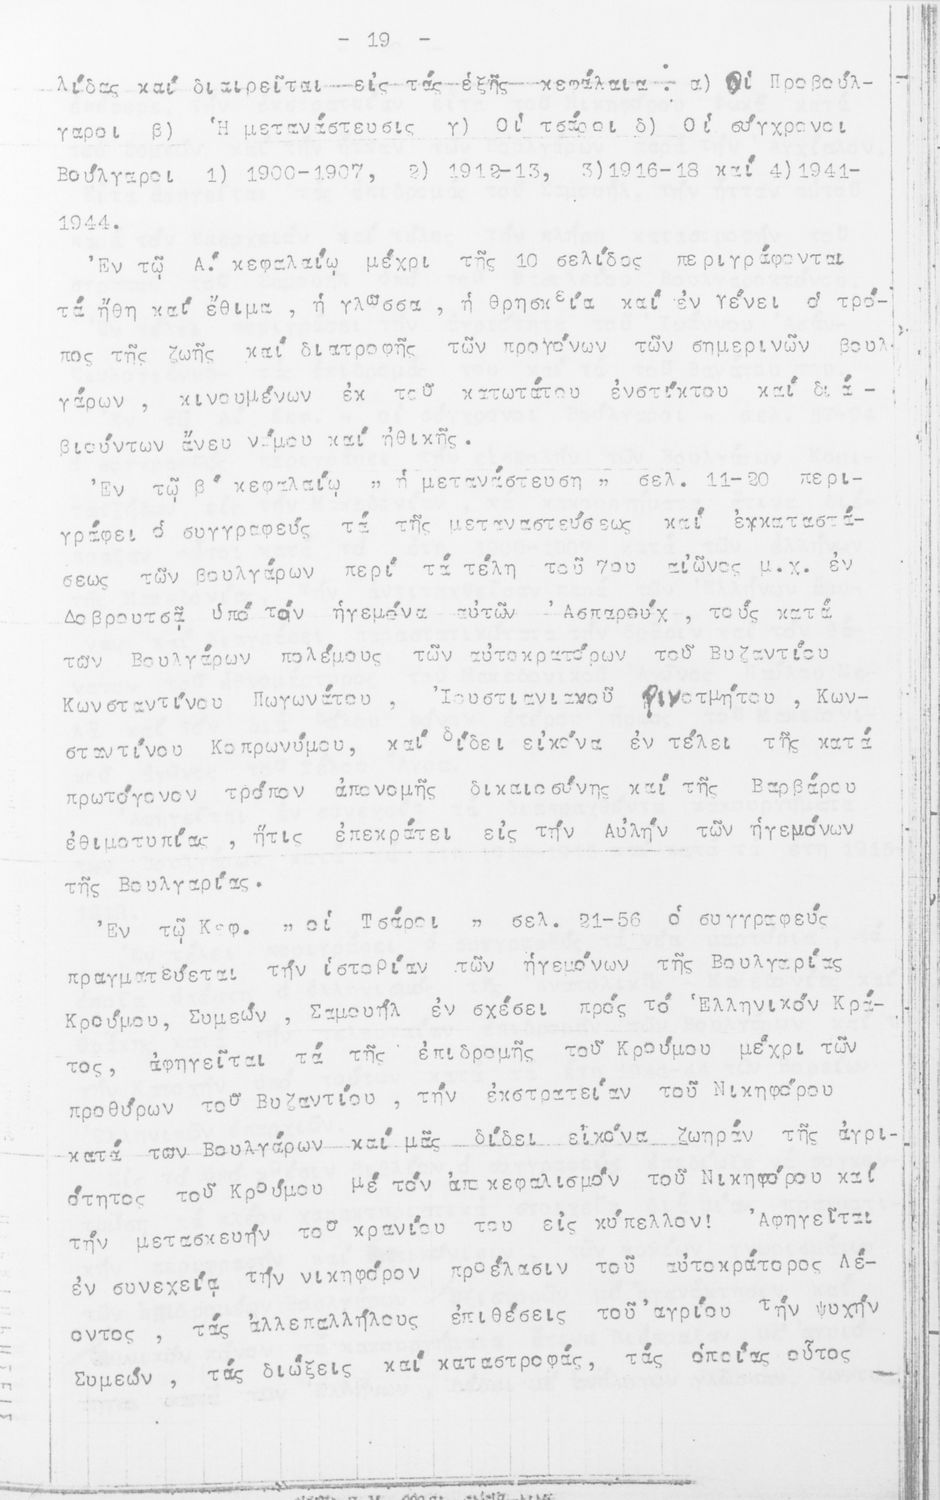 - 19 -
λίδας καί διαιρεῖται εἰς τάς ἑξῆς κεφάλαια : α) Οἱ Προβούλ-
γαροι β) Ἡ μετανάστευσις γ) Οἱ τσάροι δ) Οἱ σύγχρονοι
Βούλγαροι 1) 1900-1907, 2) 1912-13, 3)1916-18 καί 4)1941-
1944.
Ἐν τῷ Α΄ κεφαλαίῳ μέχρι τῆς 10 σελίδος περιγράφονται
τά ἤθη καί ἔθιμα , ἡ γλῶσσα , ἡ θρησκεία καί ἐν γένει ὁ τρό-
πος τῆς ζωῆς καί διατροφῆς τῶν προγόνων τῶν σημερινῶν βουλ-
γάρων , κινουμένων ἐκ τοῦ κατωτάτου ἐνστίκτου καί διά -
βιούντων ἄνευ νόμου καί ἠθικῆς.
Ἐν τῷ β΄ κεφαλαίῳ „ ἡ μετανάστευση „ σελ. 11-20 περι-
γράφει ὁ συγγραφεύς τά τῆς μεταναστεύσεως καί ἐγκαταστά-
σεως τῶν βουλγάρων περί τά τέλη τοῦ 7ου αἰῶνος μ.χ. ἐν
Δοβρουτσᾷ ὑπό τόν ἡγεμόνα αὐτῶν Ἀσπαρούχ , τούς κατά
των Βουλγάρων πολέμους τῶν αὐτοκρατόρων τοῦ Βυζαντίου
Κωνσταντίνου Πωγωνάτου , Ἰουστιανιανοῦ ρινοτμήτου , Κων-
σταντίνου Κοπρωνύμου, καί δίδει εἰκόνα ἐν τέλει τῆς κατά
πρωτόγονον τρόπον ἀπονομῆς δικαιοσύνης καί τῆς Βαρβάρου
ἐθιμοτυπίας , ἥτις ἐπεκράτει εἰς τήν Αὐλήν τῶν ἡγεμόνων
τῆς Βουλγαρίας.
Ἐν τῷ Κεφ. „ οἱ Τσάροι „ σελ. 21-56 ὁ συγγραφεύς
πραγματεύεται τήν ἱστορίαν τῶν ἡγεμόνων τῆς Βουλγαρίας
Κρούμου, Συμεών , Σαμουήλ ἐν σχέσει πρός τό Ἑλληνικόν Κρά-
τος, ἀφηγεῖται τά τῆς ἐπιδρομῆς τοῦ Κρούμου μέχρι τῶν
προθύρων τοῦ Βυζαντίου , τήν ἐκστρατείαν τοῦ Νικηφόρου
κατά των Βουλγάρων καί μᾶς δίδει εἰκόνα ζωηράν τῆς ἀγρι-
ότητος τοῦ Κρούμου μέ τόν ἀποκεφαλισμόν τοῦ Νικηφόρου καί
τήν μετασκευήν τοῦ κρανίου του εἰς κύπελλον! Ἀφηγεῖται
ἐν συνεχείᾳ τήν νικηφόρον προέλασιν τοῦ αὐτοκράτορος Λέ-
οντος , τάς ἀλλεπαλλήλους ἐπιθέσεις τοῦ ἀγρίου τήν ψυχήν
Συμεών , τάς διώξεις καί καταστροφάς, τάς ὁποίας οὗτος